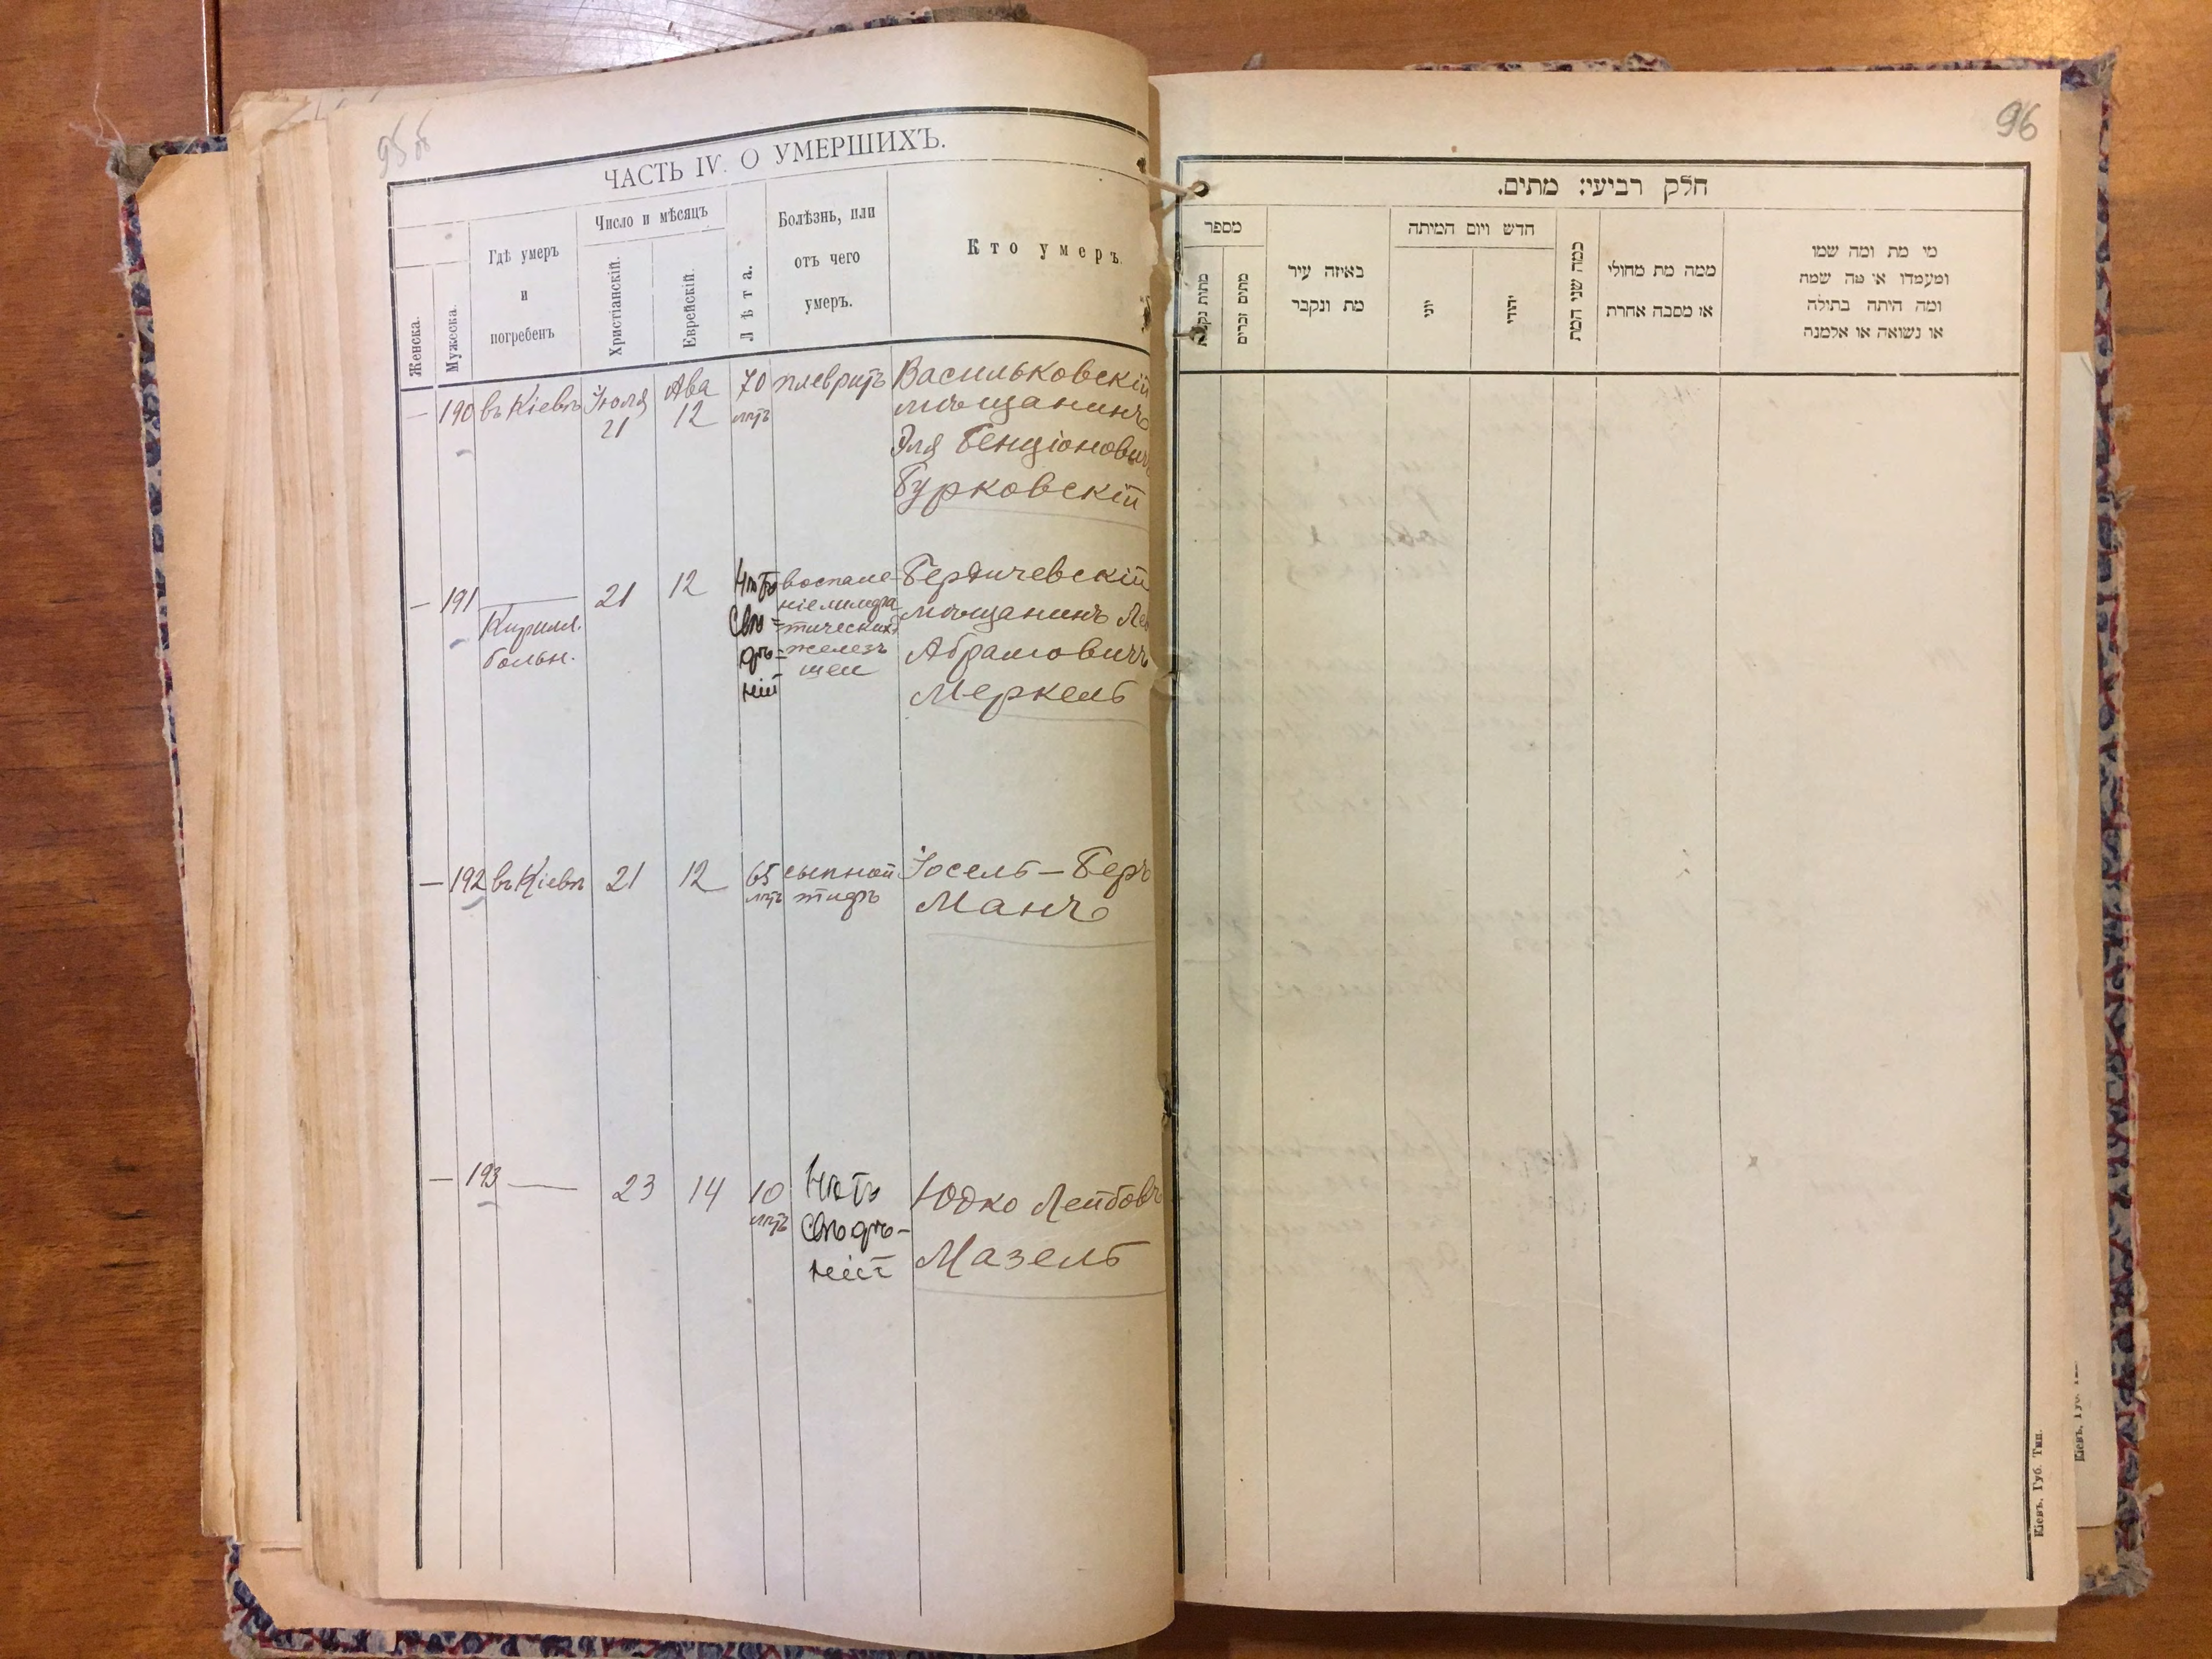 95об
ЧАСТЬ IV. О УМЕРШИХЪ.
Женска.
Мужеска.
Гдѣ умеръ
и
погребенъ
Число и мѣсяцъ
Христіанскій.
Еврейскій.
Лѣта.
Болѣзнь, или
отъ чего
умеръ.
Кто умеръ.
— 190 въ Кіевѣ Іюля 21 Ава 12 70 лѣтъ плевритъ Васильковскій
мѣщанинъ
Эля Бенціонович
Бурковскій
— 191 — 21 12 Нѣтъ воспале- Бердичевскій
Кирилл. Свѣ- ніе лимфа- мѣщанинъ Ле
больн. дѣ- тическихъ Абрамовичъ
ній железъ Меркель
шеи
— 192 въ Кіевѣ 21 12 65 сыпной Іосель-Беръ
лѣтъ тифъ Манъ
— 193 — 23 14 10 Нѣтъ Юдко Лейбов
лѣтъ Свѣдѣ- Мазель
ній
96
חלק רביעי: מתים.
מספר
מתות נק
מתים זכרים
באיזה עיר
מת ונקבר
חדש ויום המיתה
יוני
יהודי
כמה שני המת
ממה מת מחולי
או מסבה אחרת
מי מת ומה שמו
ומעמדו או מה שמה
ומה היתה בתולה
או נשואה או אלמנה
Кіевъ, Губ. Тип.
Кіевъ, Губ. Т